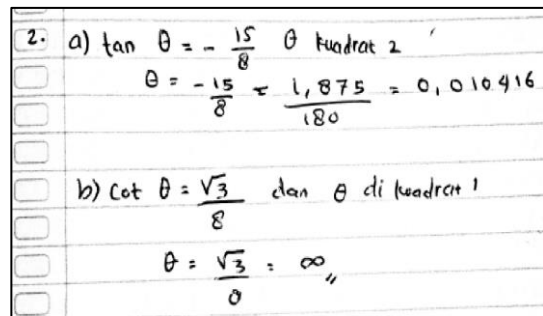 2. a) tan θ = - 15/8 θ kuadrat 2
θ = - 15/8 = 1,875/180 = 0,010416
b) Cot θ = √3/8 dan θ di kuadrat 1
θ = √3/0 = ∞,,